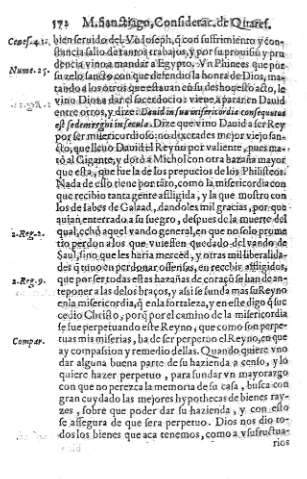 572 M. Sanctiago, Considerac. de Quares.
Genes. 41. bien seruido del. Vn Ioseph, q̃ con sufrimiento y con-
stancia salio de tantos trabajos, y por su prouisiõ y pru
dencia vino a mandar a Egypto. Vn Phinees que por
Nume. 25. su zelo sancto con que defendio la honra de Dios, ma-
tando a los otros que estauan en su deshonesto acto, le
vino Dios a dar el sacerdocio: viene a parar en Dauid
entre otros, y dize: Dauid in sua misericordia consequutus
est sedem regni in sæcula. Dize que vino Dauid a ser Rey
por ser misericordioso: no dixerades mejor viejo san-
cto, que lleuo Dauid el Reyno por valiente, pues ma-
tò al Gigante, y dotò a Michol con otra hazaña mayor
que esta, que fue la de los prepucios de los Philisteos.
Nada de esso tiene por tãto, como la misericordia con
que recibio tanta gente afligida, y la que mostro con
los de Iabes de Galaad, dandoles mil gracias, por que
quian enterrado a su suegro, despues de la muerte del
2. Reg. 2. qual, echò aquel vando general, en que no solo prome
tio perdon a los que vuiessen quedado del vando de
Saul, sino que les haria merced, y otras mil liberalida-
des q̃ tuuo en perdonar offensas, en recebir affligidos,
2. Reg. 9. que por ser todas estas hazañas de coraçõ se han de an-
teponer a las delos braços, y assi se funda mas su Reyno
en la misericordia, q̃ en la fortaleza, y en este digo q̃ suc
cedio Christo, porq̃ por el camino de la misericordia
se fue perpetuando este Reyno, que como son perpe-
Compar. tuas mis miserias, ha de ser perpetuo el Reyno, en que
ay compassion y remedio dellas. Quando quiere vno
dar alguna buena parte de su hazienda a censo, y lo
quiere hazer perpetuo, para fundar vn mayorazgo
con que no perezca la memoria de su casa, busca con
gran cuydado las mejores hypothecas de bienes ray-
zes, sobre que poder dar su hazienda, y con esto
se assegura de que sera perpetuo. Dios nos dio to-
dos los bienes que aca tenemos, como a vsufructua-
rios